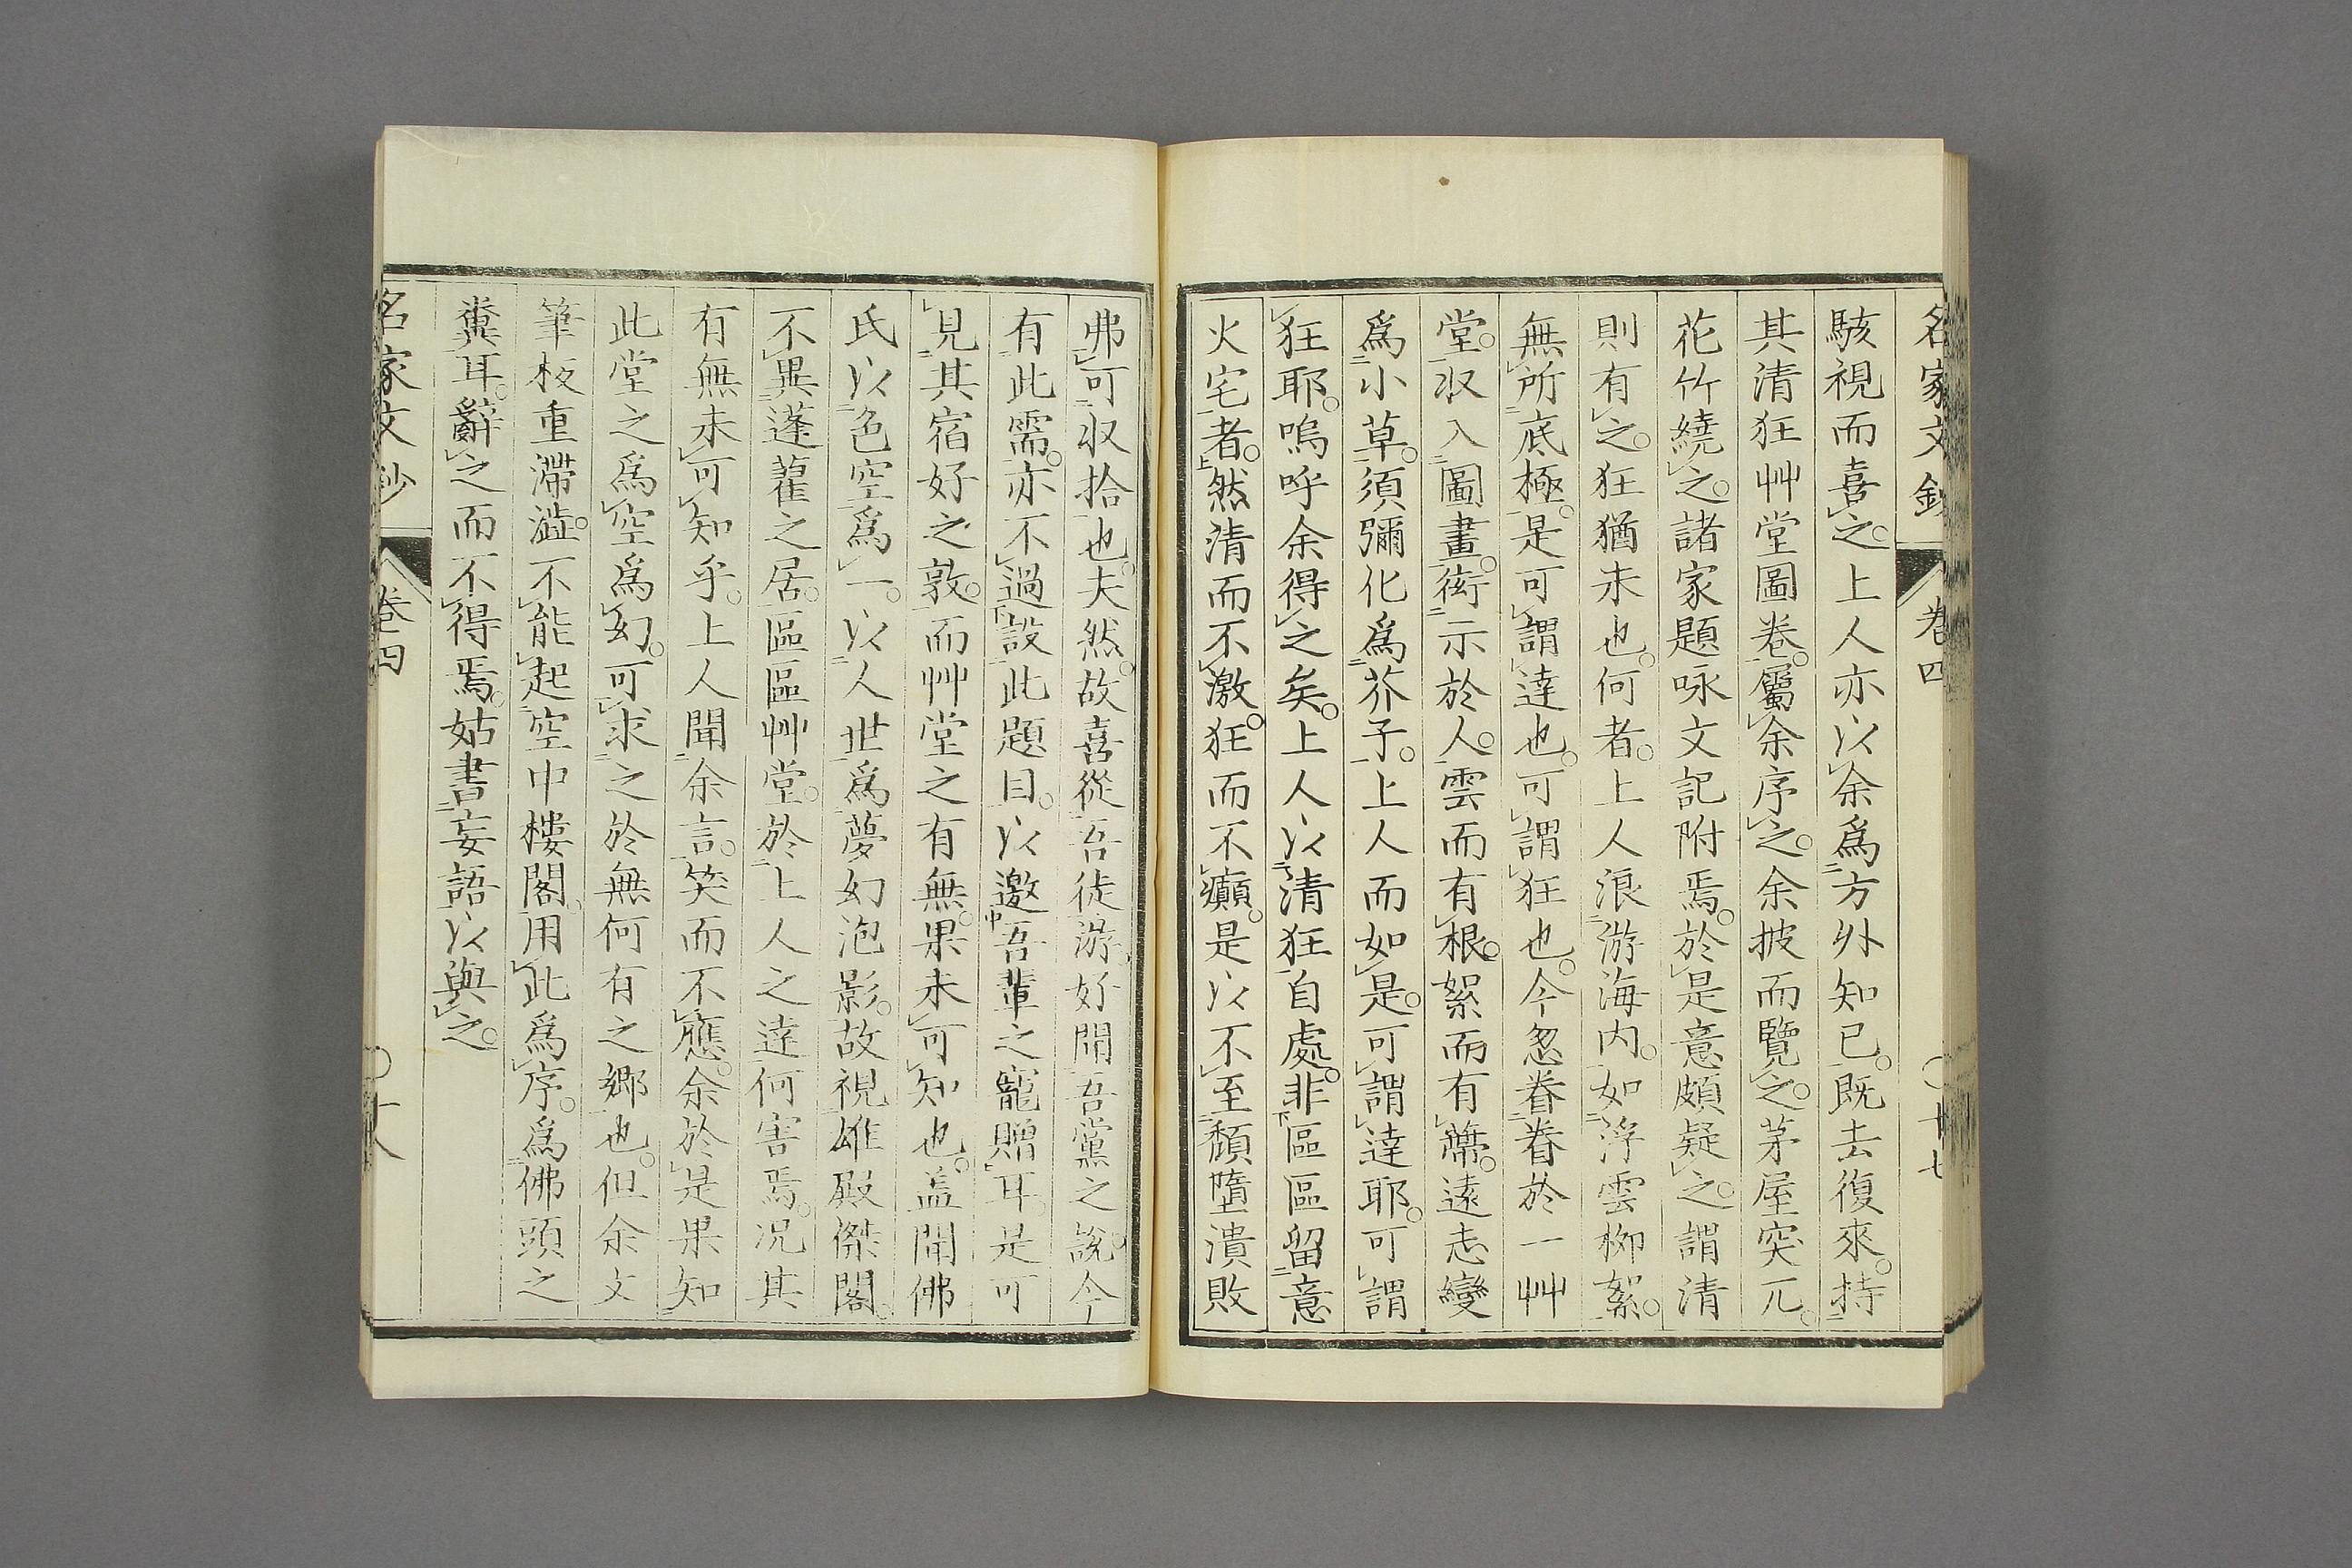 名家文鈔 卷四 〇十七
駭視而喜之。上人亦以余爲方外知已。既去復來。持
其清狂艸堂圖卷。屬余序之。余披而覽之。茅屋突兀。
花竹繞之。諸家題咏文記附焉。於是意頗疑之。謂清
則有之。狂猶未也。何者。上人浪游海内。如浮雲柳絮。
無所底極。是可謂達也。可謂狂也。今忽眷眷於一艸
堂。収入圖畫。衒示於人。雲而有根。絮而有蔕。遠志變
爲小草。須彌化爲芥子。上人而如是。可謂達耶。可謂
狂耶。嗚呼余得之矣。上人以清狂自處。非區區留意
火宅者。然清而不激。狂而不癲。是以不至頽墮潰敗
弗可収拾也。夫然。故喜從吾徒游、好聞吾黨之說。今
有此需。亦不過設此題目。以邀吾輩之寵贈耳。是可
見其宿好之敦。而艸堂之有無。果未可知也。盖聞佛
氏以色空爲一。以人世爲夢幻泡影。故視雄殿傑閣。
不異蓬藋之居。區區艸堂。於上人之達何害焉。况其
有無未可知乎。上人聞余言。笑而不應。余於是果知
此堂之爲空爲幻。可求之於無何有之鄉也。但余文
筆板重滯澁。不能起空中樓閣、用此爲序。爲佛頭之
糞耳。辭之而不得焉。姑書妄語以與之。
名家文鈔 卷四 〇十八